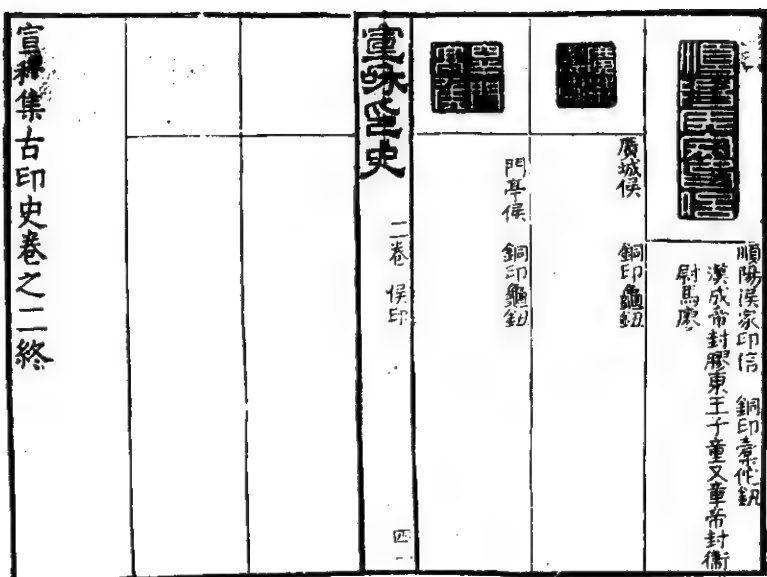 順陽侯家印信　銅印橐佗鈕
漢成帝封膠東王子童又章帝封衞
尉馬廖
廣城侯　銅印龜鈕
門亭侯　銅印龜鈕
宣和印史　二卷　侯印　四一
宣和集古印史卷之二終